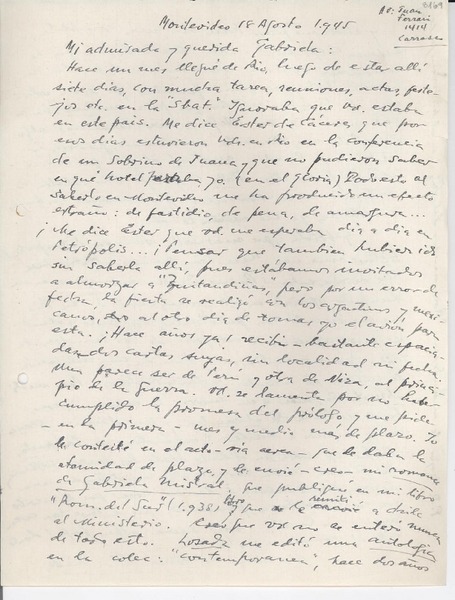 Montevideo 18 Agosto 1.945
Av: Juan
Ferrari
1414
Carrasco
Mi admirada y querida Gabriela:
Hace un mes llegué de Río, luego de estar allí
siete días, con mucha tarea, reuniones, actas, feste-
jos etc. en la "Sbat". Ignoraba que vd. estaba
en este país. Me dice Ester de Cáceres, que por
esos días estuvieron vds. en Río en la conferencia
de un Sobrino de Juana y que no pudieron saber
en qué hotel estaba yo. (en el Gloria) Todo esto al
saberlo en Montevideo me ha producido un efecto
extraño: de fastidio, de pena, de amargura...
¡Me dice Ester que vd. me esperaba día a día en
Petrópolis...! Pensar que también hubiera ido
sin saberla allí, pues estábamos invitados
a almorzar a "Quitandinha", pero por un error de
fecha, la fiesta se realizó con los argentinos y meji-
canos, al otro día de tomar yo el avión para
esta. ¡Hace años ya! recibí - bastante espacia-
das - dos cartas suyas, sin localidad ni fecha.
Una parece ser de Perú y otra de Niza, al princi-
pio de la guerra. vd. se lamenta por no haber
cumplido la promesa del prólogo y me pide
- en la primera - mes y medio más de plazo. Yo
le contesté en el acto - vía aerea - que le daba la
eternidad de plazo, y le envié - creo - mi romance
de Gabriela Mistral, que publiqué en mi libro
"Rom. del Sur" (1.938) libro que remití a Chile
al Ministerio. Creo que vd. no se enteró nunca
de todo esto. Losada me editó una antología
en la colec: "contemporanea", hace dos años